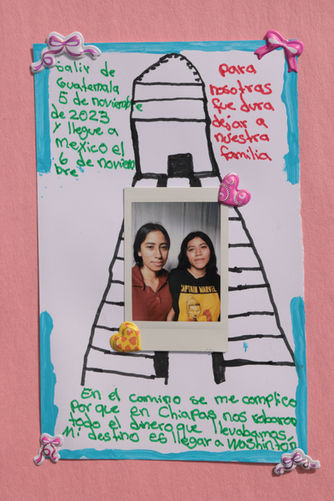 Salir de
Guatemala
5 de noviembre
de 2023
y llegue a
mexico el
6 de noviem
bre
para
nosotras
fue dura
dejar a
nuestra
familia
CAPTAIN MARVEL
En el camino se me complico
porque en Chiapas nos robaron
todo el dinero que llevabamos
Mi destino es llegar a Washinton